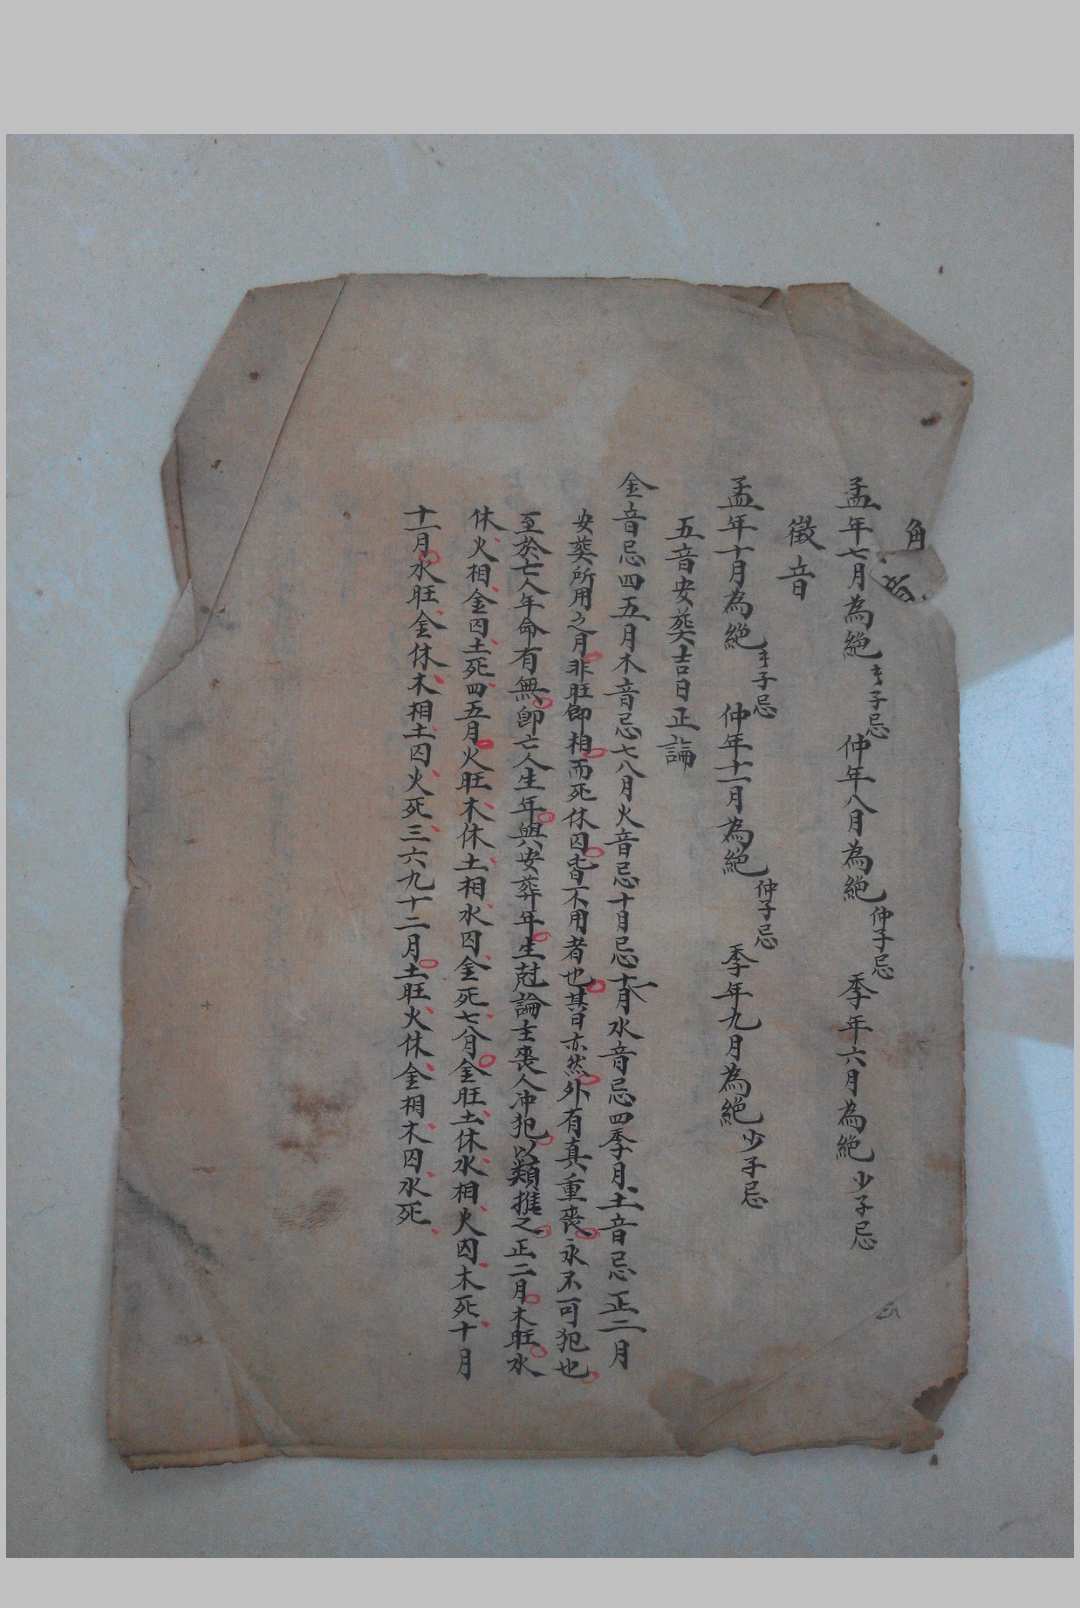 角音
孟年七月為絕 長子忌 仲年八月為絕 仲子忌 季年六月為絕 少子忌
徵音
孟年十月為絕 長子忌 仲年十一月為絕 仲子忌 季年九月為絕 少子忌
五音安葬吉日正論
金音忌四五月木音忌七八月火音忌十月忌十一月水音忌四季月土音忌正二月
安葬所用之月非旺即相而死休囚皆不用者也其日亦然外有真重喪永不可犯也
至於亡人年命有無即亡人生年與安葬年生尅論主喪人冲犯以類推之正二月木旺水
休火相金囚土死四五月火旺木休土相水囚金死七八月金旺土休水相火囚木死十月
十一月水旺金休木相土囚火死三六九十二月土旺火休金相木囚水死